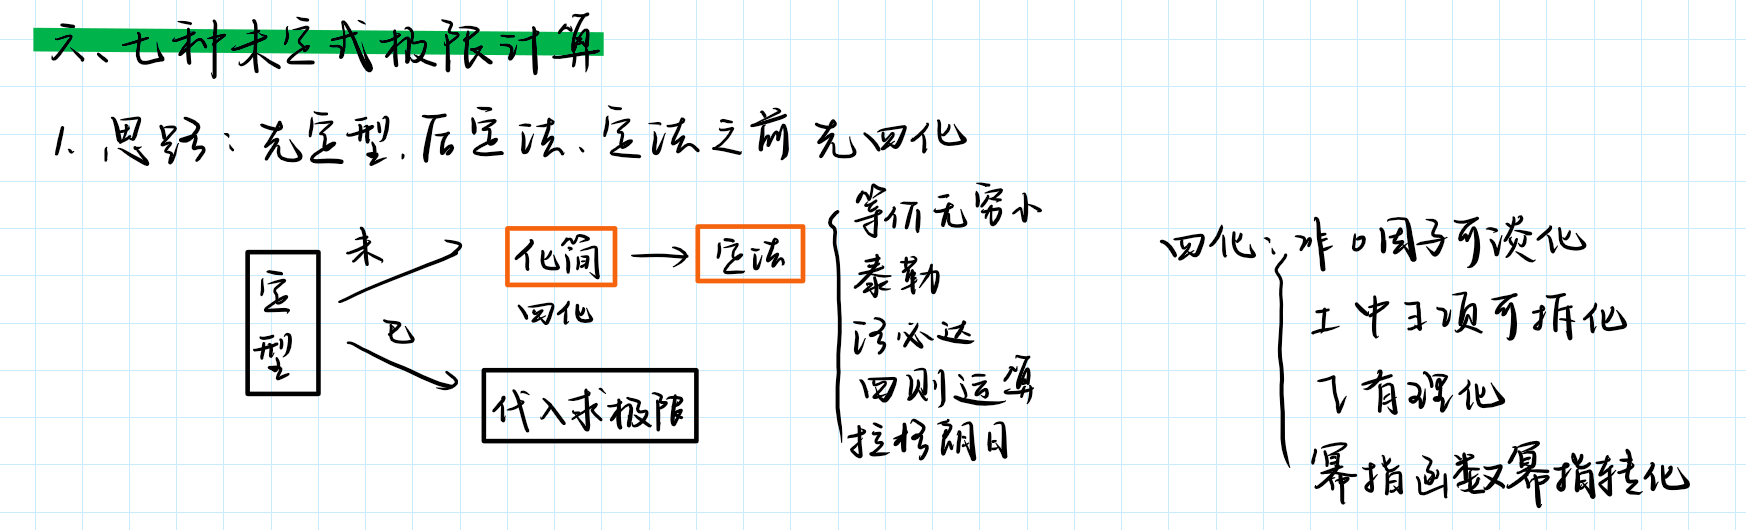 六、七种未定式极限计算
1. 思路：先定型，后定法、定法之前先四化
定型
未
已
化简
四化
定法
代入求极限
等价无穷小
泰勒
洛必达
四则运算
拉格朗日
四化：非0因子可淡化
土中王项可拆化
飞有理化
幂指函数幂指转化